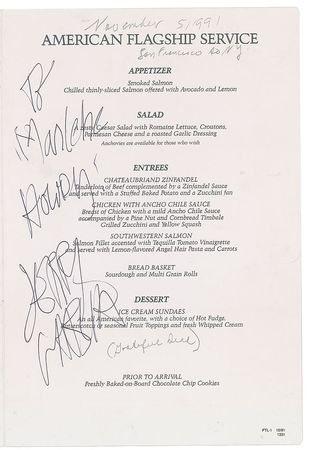 November 5, 1991
AMERICAN FLAGSHIP SERVICE
San Francisco to NY
APPETIZER
Smoked Salmon
Chilled thinly-sliced Salmon offered with Avocado and Lemon
To
SALAD
A zesty Caesar Salad with Romaine Lettuce, Croutons,
Parmesan Cheese and a roasted Garlic Dressing
Anchovies are available for those who wish
ENTREES
CHATEAUBRIAND ZINFANDEL
Tenderloin of Beef complemented by a Zinfandel Sauce
and served with a Stuffed Baked Potato and a Zucchini fan
CHICKEN WITH ANCHO CHILE SAUCE
Breast of Chicken with a mild Ancho Chile Sauce
accompanied by a Pine Nut and Cornbread Timbale
Grilled Zucchini and Yellow Squash
SOUTHWESTERN SALMON
Salmon Fillet accented with Tequila Tomato Vinaigrette
and served with Lemon-flavored Angel Hair Pasta and Carrots
BREAD BASKET
Sourdough and Multi Grain Rolls
JERRY
GARCIA
DESSERT
ICE CREAM SUNDAES
An All American favorite, with a choice of Hot Fudge,
Butterscotch or seasonal Fruit Toppings and fresh Whipped Cream
(Grateful Dead)
PRIOR TO ARRIVAL
Freshly Baked-on-Board Chocolate Chip Cookies